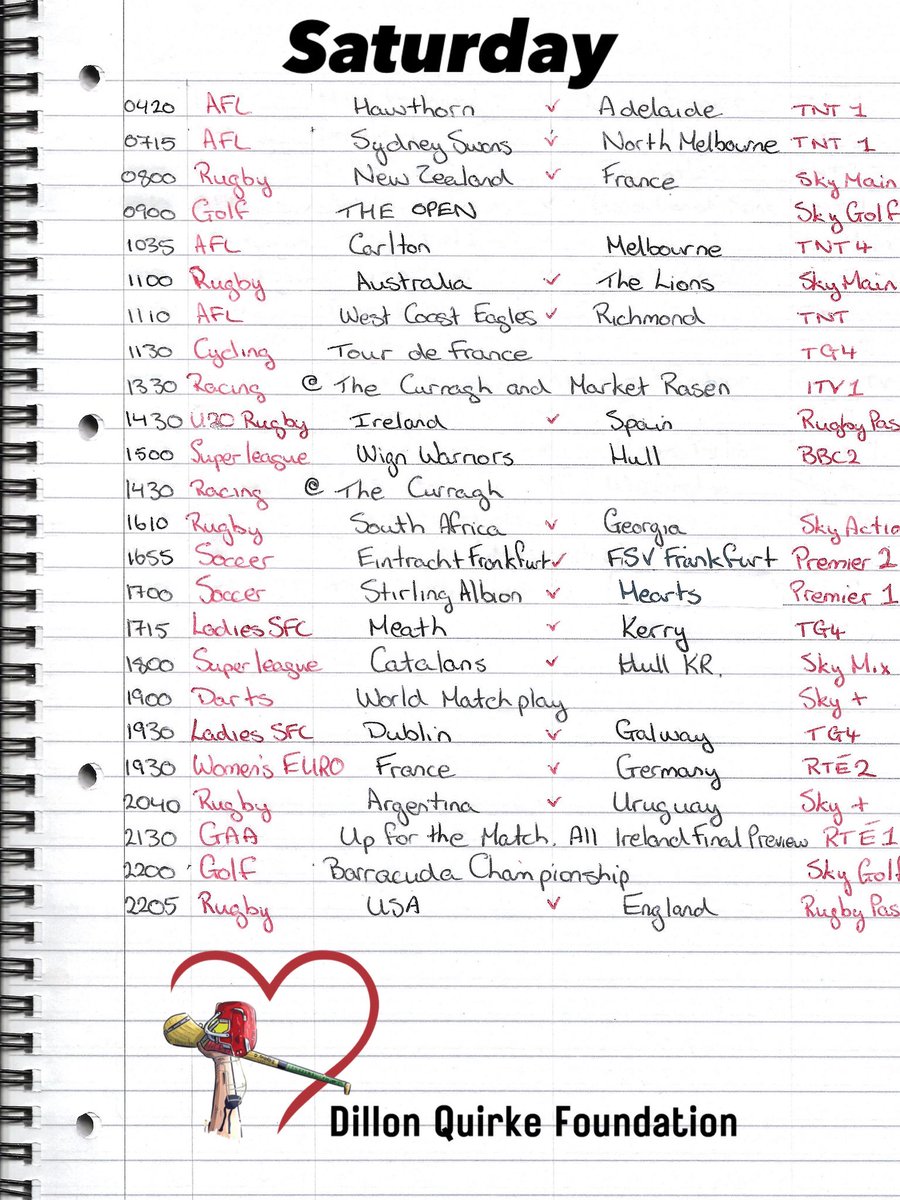 Saturday
0420 AFL Hawthorn v Adelaide TNT 1
0715 AFL Sydney Swans v North Melbourne TNT 1
0800 Rugby New Zealand v France Sky Main
0900 Golf THE OPEN Sky Golf
1035 AFL Carlton Melbourne TNT 4
1100 Rugby Australia v The Lions Sky Main
1110 AFL West Coast Eagles v Richmond TNT
1130 Cycling Tour de France TG4
1330 Racing @ The Curragh and Market Rasen ITV 1
1430 U20 Rugby Ireland v Spain Rugby Pas
1500 Super league Wign Warriors Hull BBC2
1430 Racing @ The Curragh
1610 Rugby South Africa v Georgia Sky Actio
1655 Soccer Eintracht Frankfurt v FSV Frankfurt Premier 2
1700 Soccer Stirling Albion v Hearts Premier 1
1715 Ladies SFC Meath v Kerry TG4
1800 Super league Catalans v Hull KR. Sky Mix
1900 Darts World Matchplay Sky +
1930 Ladies SFC Dublin v Galway TG4
1930 Women's EURO France v Germany RTÉ 2
2040 Rugby Argentina v Uruguay Sky +
2130 GAA Up for the Match. All Ireland Final Preview RTÉ 1
2200 Golf Barracuda Championship Sky Golf
2205 Rugby USA v England Rugby Pas
Dillon Quirke Foundation